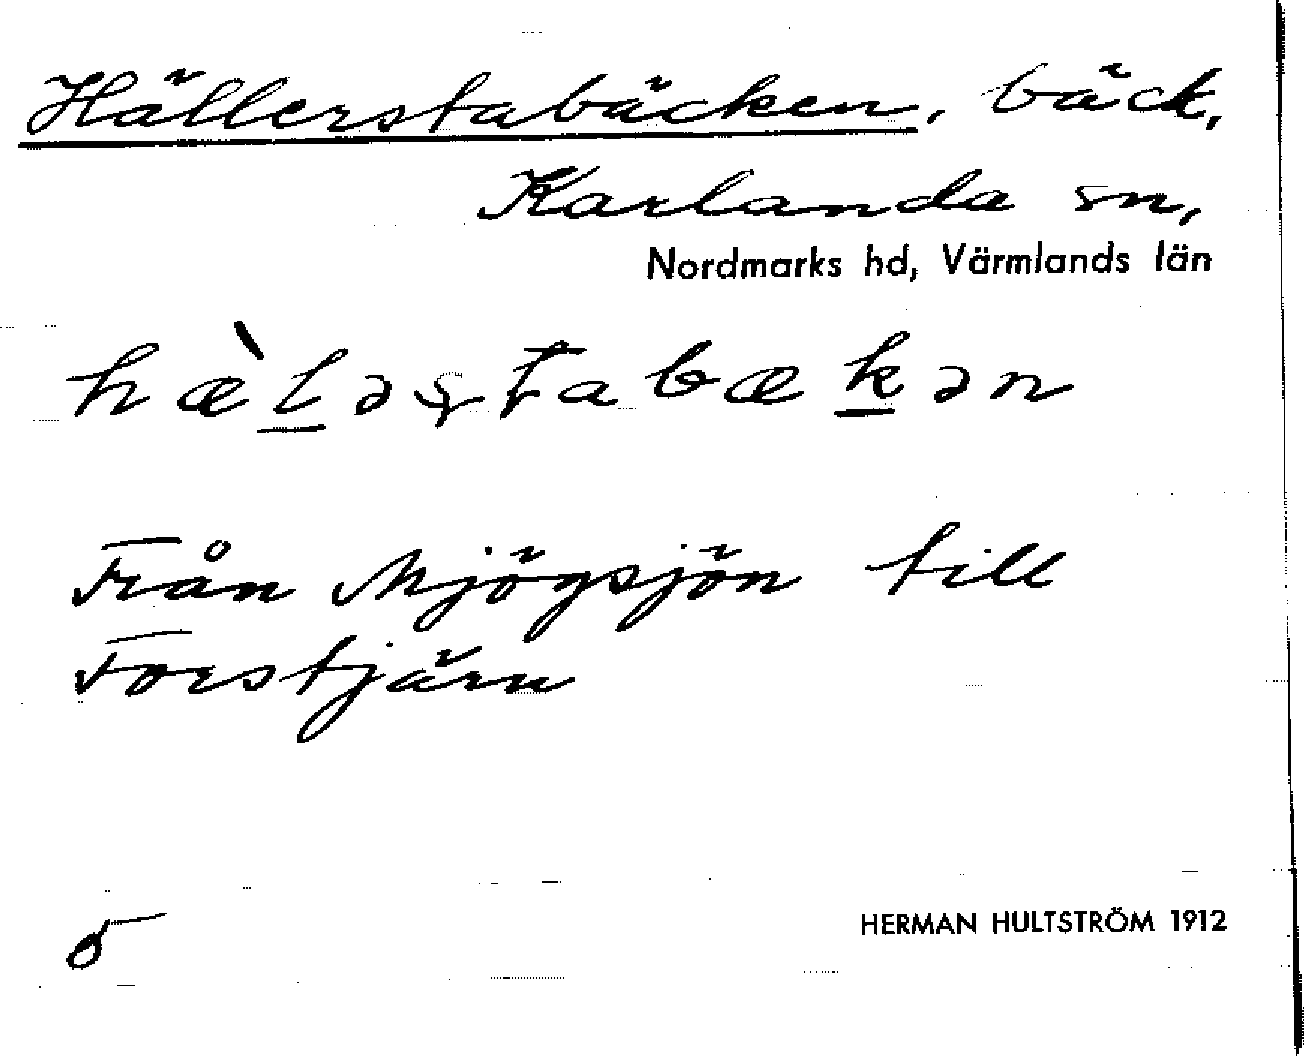 Hällerstabäcken, bäck,
Karlanda sn,
Nordmarks hd, Värmlands län
hæ̀l̲əʂʈabæk̲ən
Från Mjögsjön till
Forstjärn
HERMAN HULTSTRÖM 1912